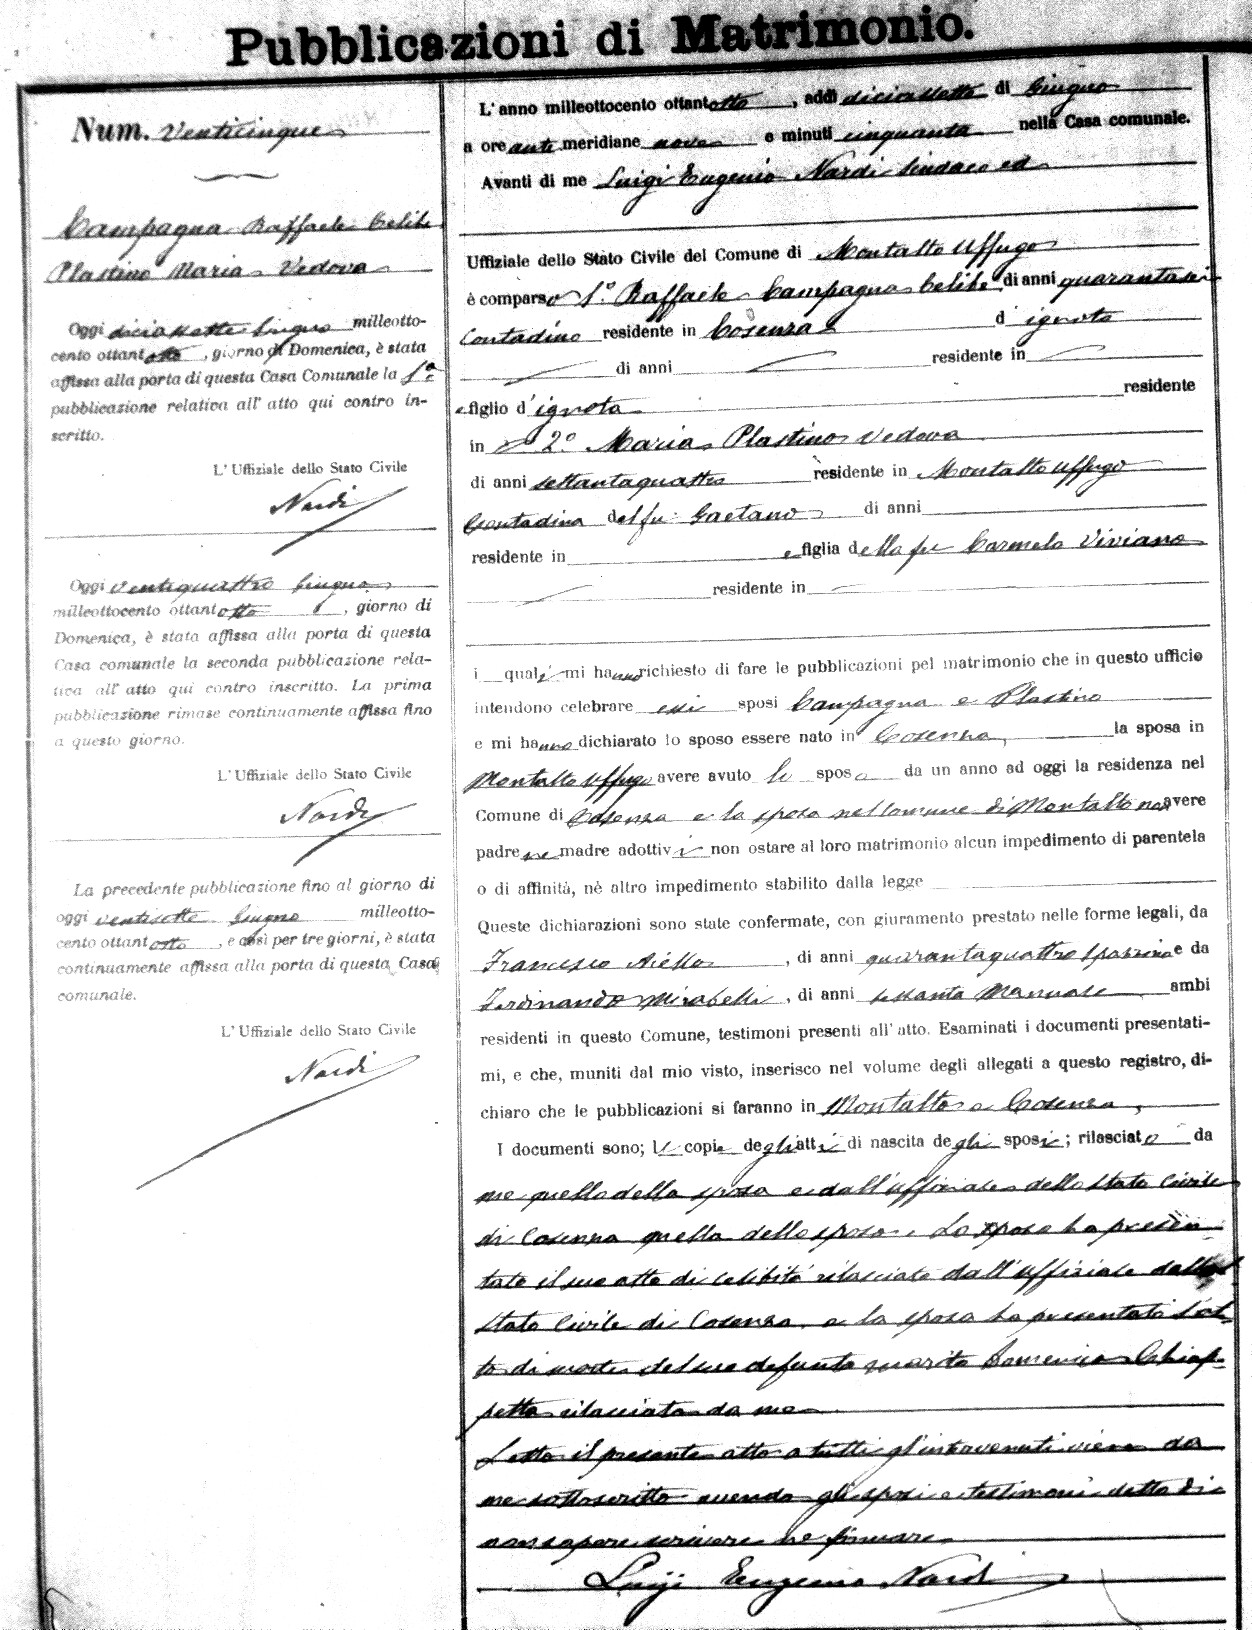 Pubblicazioni di Matrimonio.
Num. Venticinque
Campagna Raffaele Celibe
Plastino Maria Vedova
Oggi diciassette Giugno milleotto-
cento ottantotto, giorno di Domenica, è stata
affissa alla porta di questa Casa Comunale la 1ª
pubblicazione relativa all' atto qui contro in-
scritto.
L' Uffiziale dello Stato Civile
Nardi
Oggi ventiquattro Giugno
milleottocento ottantotto, giorno di
Domenica, è stata affissa alla porta di questa
Casa comunale la seconda pubblicazione rela-
tiva all' atto qui contro inscritto. La prima
pubblicazione rimase continuamente affissa fino
a questo giorno.
L' Uffiziale dello Stato Civile
Nardi
La precedente pubblicazione fino al giorno di
oggi ventisette Giugno milleotto-
cento ottantotto, e così per tre giorni, è stata
continuamente affissa alla porta di questa Casa
comunale.
L' Uffiziale dello Stato Civile
Nardi
L' anno milleottocento ottantotto, addì diciassette di Giugno
a ore anti meridiane nove e minuti cinquanta nella Casa comunale.
Avanti di me Luigi Eugenio Nardi Sindaco ed
Uffiziale dello Stato Civile del Comune di Montalto Uffugo
è comparso 1.º Raffaele Campagna Celibe di anni quarantasei
Contadino residente in Cosenza d'ignoto
di anni residente in
e figlio d'ignota residente
in 2.º Maria Plastino Vedova
di anni settantaquattro residente in Montalto Uffugo
Contadina del fu Gaetano di anni
residente in e figlia della fu Carmela Viviano
residente in
i quali mi hanno richiesto di fare le pubblicazioni pel matrimonio che in questo ufficio
intendono celebrare essi sposi Campagna e Plastino
e mi hanno dichiarato lo sposo essere nato in Cosenza, la sposa in
Montalto Uffugo avere avuto lo sposo da un anno ad oggi la residenza nel
Comune di Cosenza e la sposa nel Comune di Montalto non avere
padre ne madre adottivi non ostare al loro matrimonio alcun impedimento di parentela
o di affinità, nè altro impedimento stabilito dalla legge
Queste dichiarazioni sono state confermate, con giuramento prestato nelle forme legali, da
Francesco Aiello, di anni quarantaquattro spazzino e da
Ferdinando Mirabelli, di anni sessanta Manuale ambi
residenti in questo Comune, testimoni presenti all' atto. Esaminati i documenti presentati-
mi, e che, muniti dal mio visto, inserisco nel volume degli allegati a questo registro, di-
chiaro che le pubblicazioni si faranno in Montalto e Cosenza,
I documenti sono; le copie degli atti di nascita degli sposi; rilasciato da
me quello della sposa e dall'uffiziale dello Stato Civile
di Cosenza quella dello sposo. Lo sposo ha presen-
tato il suo atto di celibità rilasciato dall'Uffiziale dello
Stato Civile di Cosenza e la sposa ha presentato l'at-
to di morte del suo defunto marito Domenico Chiap-
petta rilasciato da me
Letto il presente atto a tutti gl'intervenuti viene da
me sottoscritto avendo gli sposi e testimoni detto di
non sapere scrivere ne firmare
Luigi Eugenio Nardi